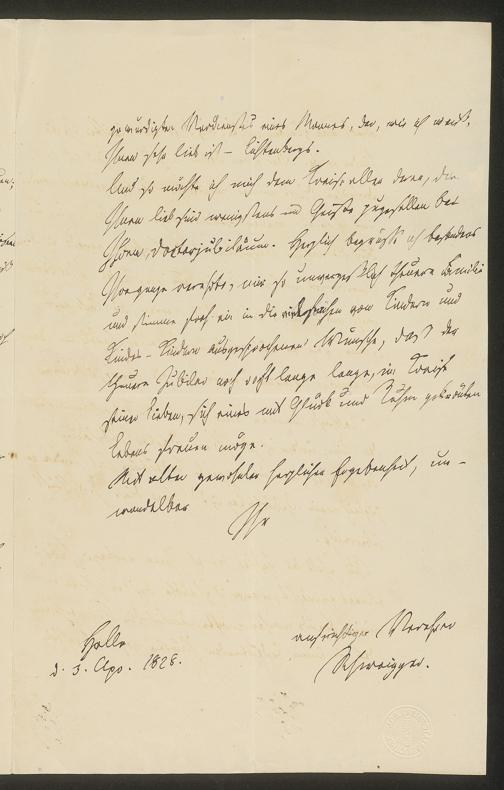 gewürdigten Verdienstes eines Mannes, der, wie ich weiß,
Ihnen sehr lieb ist – Lichtenbergs.
Und so möchte ich mich dem Kreise aller derer, die
Ihnen lieb sind wenigstens im Geiste zugesellen bei
Ihrem Doctorjubiläum. Herzlich begrüße ich besonders
verehrte, mir so unvergeßlich theuere Familie
und stimme froh ein in die von Kindern und
Kindes-Kindern ausgesprochenen Wunsche, daß der
theuere Jubilar noch recht lange lange, im Kreise
seiner Lieben, sich eines mit Glück und Ruhm gekrönten
Lebens freuen möge.
Mit alter gewohnter herzlicher Ergebenheit, un-
wandelbar
Ihr
aufrichtiger Verehrer
Schweigger.
Halle
d. 3. Apr. 1828.